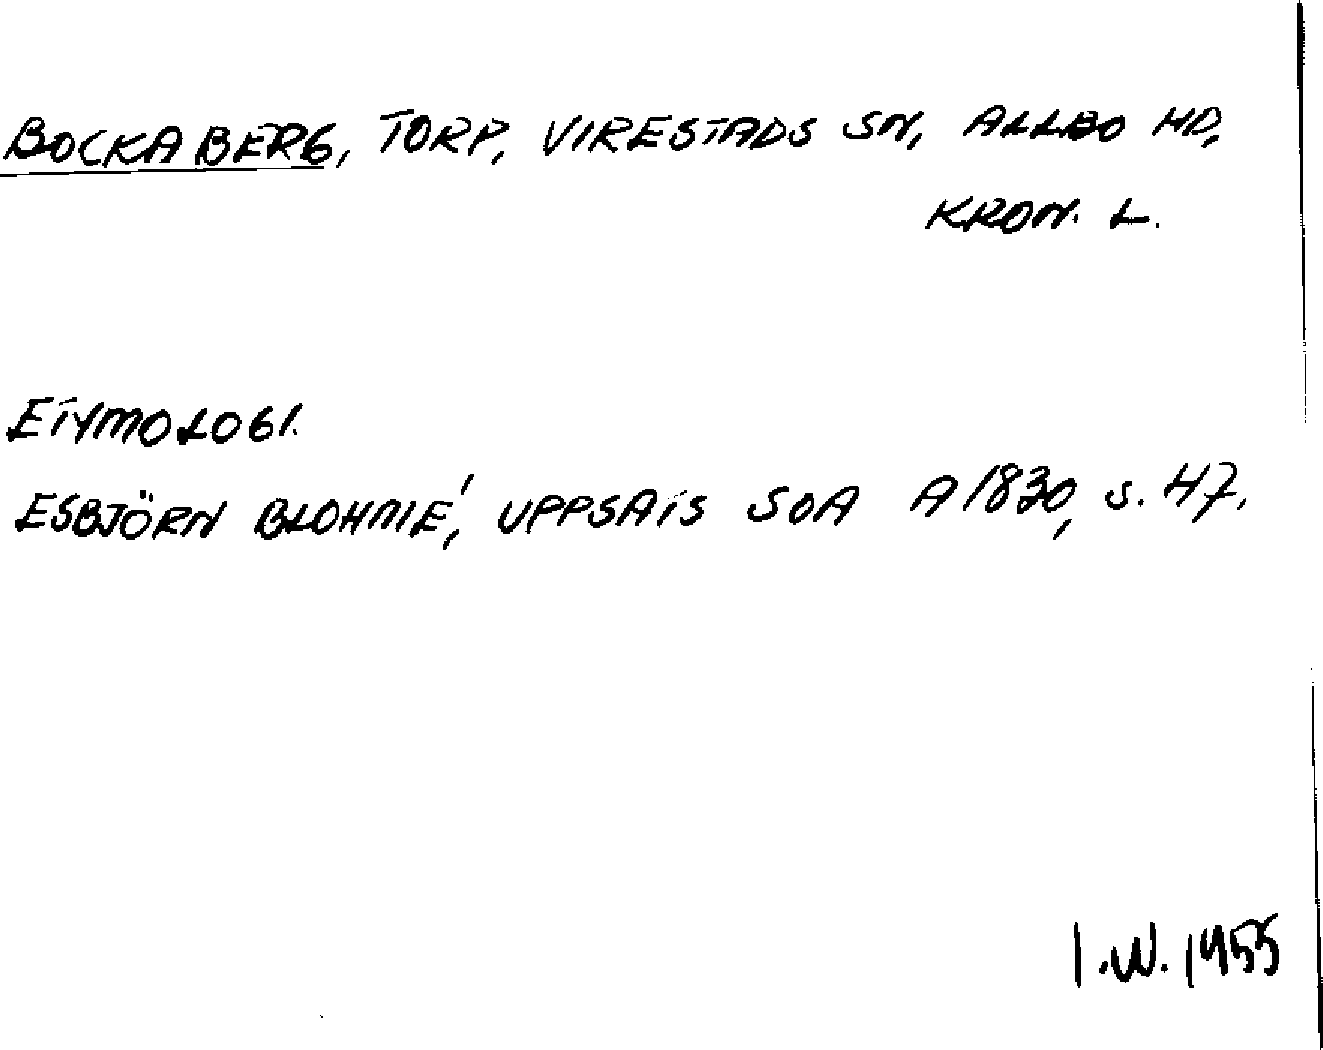 BOCKABERG, TORP, VIRESTADS SN, ALLBO HD,
KRON. L.
ETYMOLOGI.
ESBJÖRN BLOHMÉ, UPPSATS SOA A 1830, s. 47.
I.W. 1955